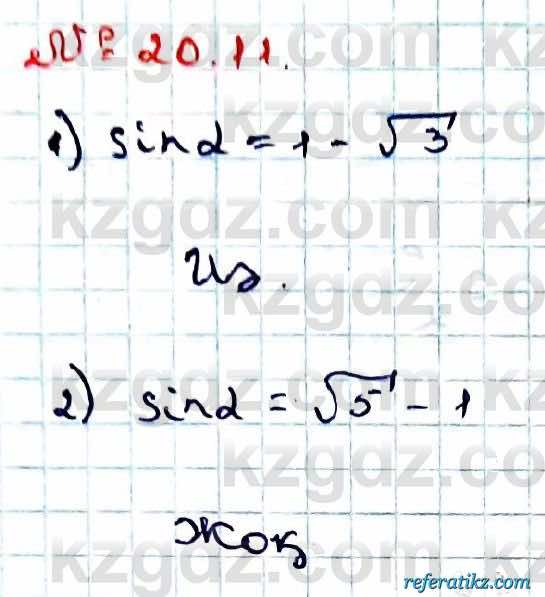 № 20.11.
1) sin α = 1 - √3
Иә.
2) sin α = √5 - 1
жоқ
referatikz.com
kzgdz.com